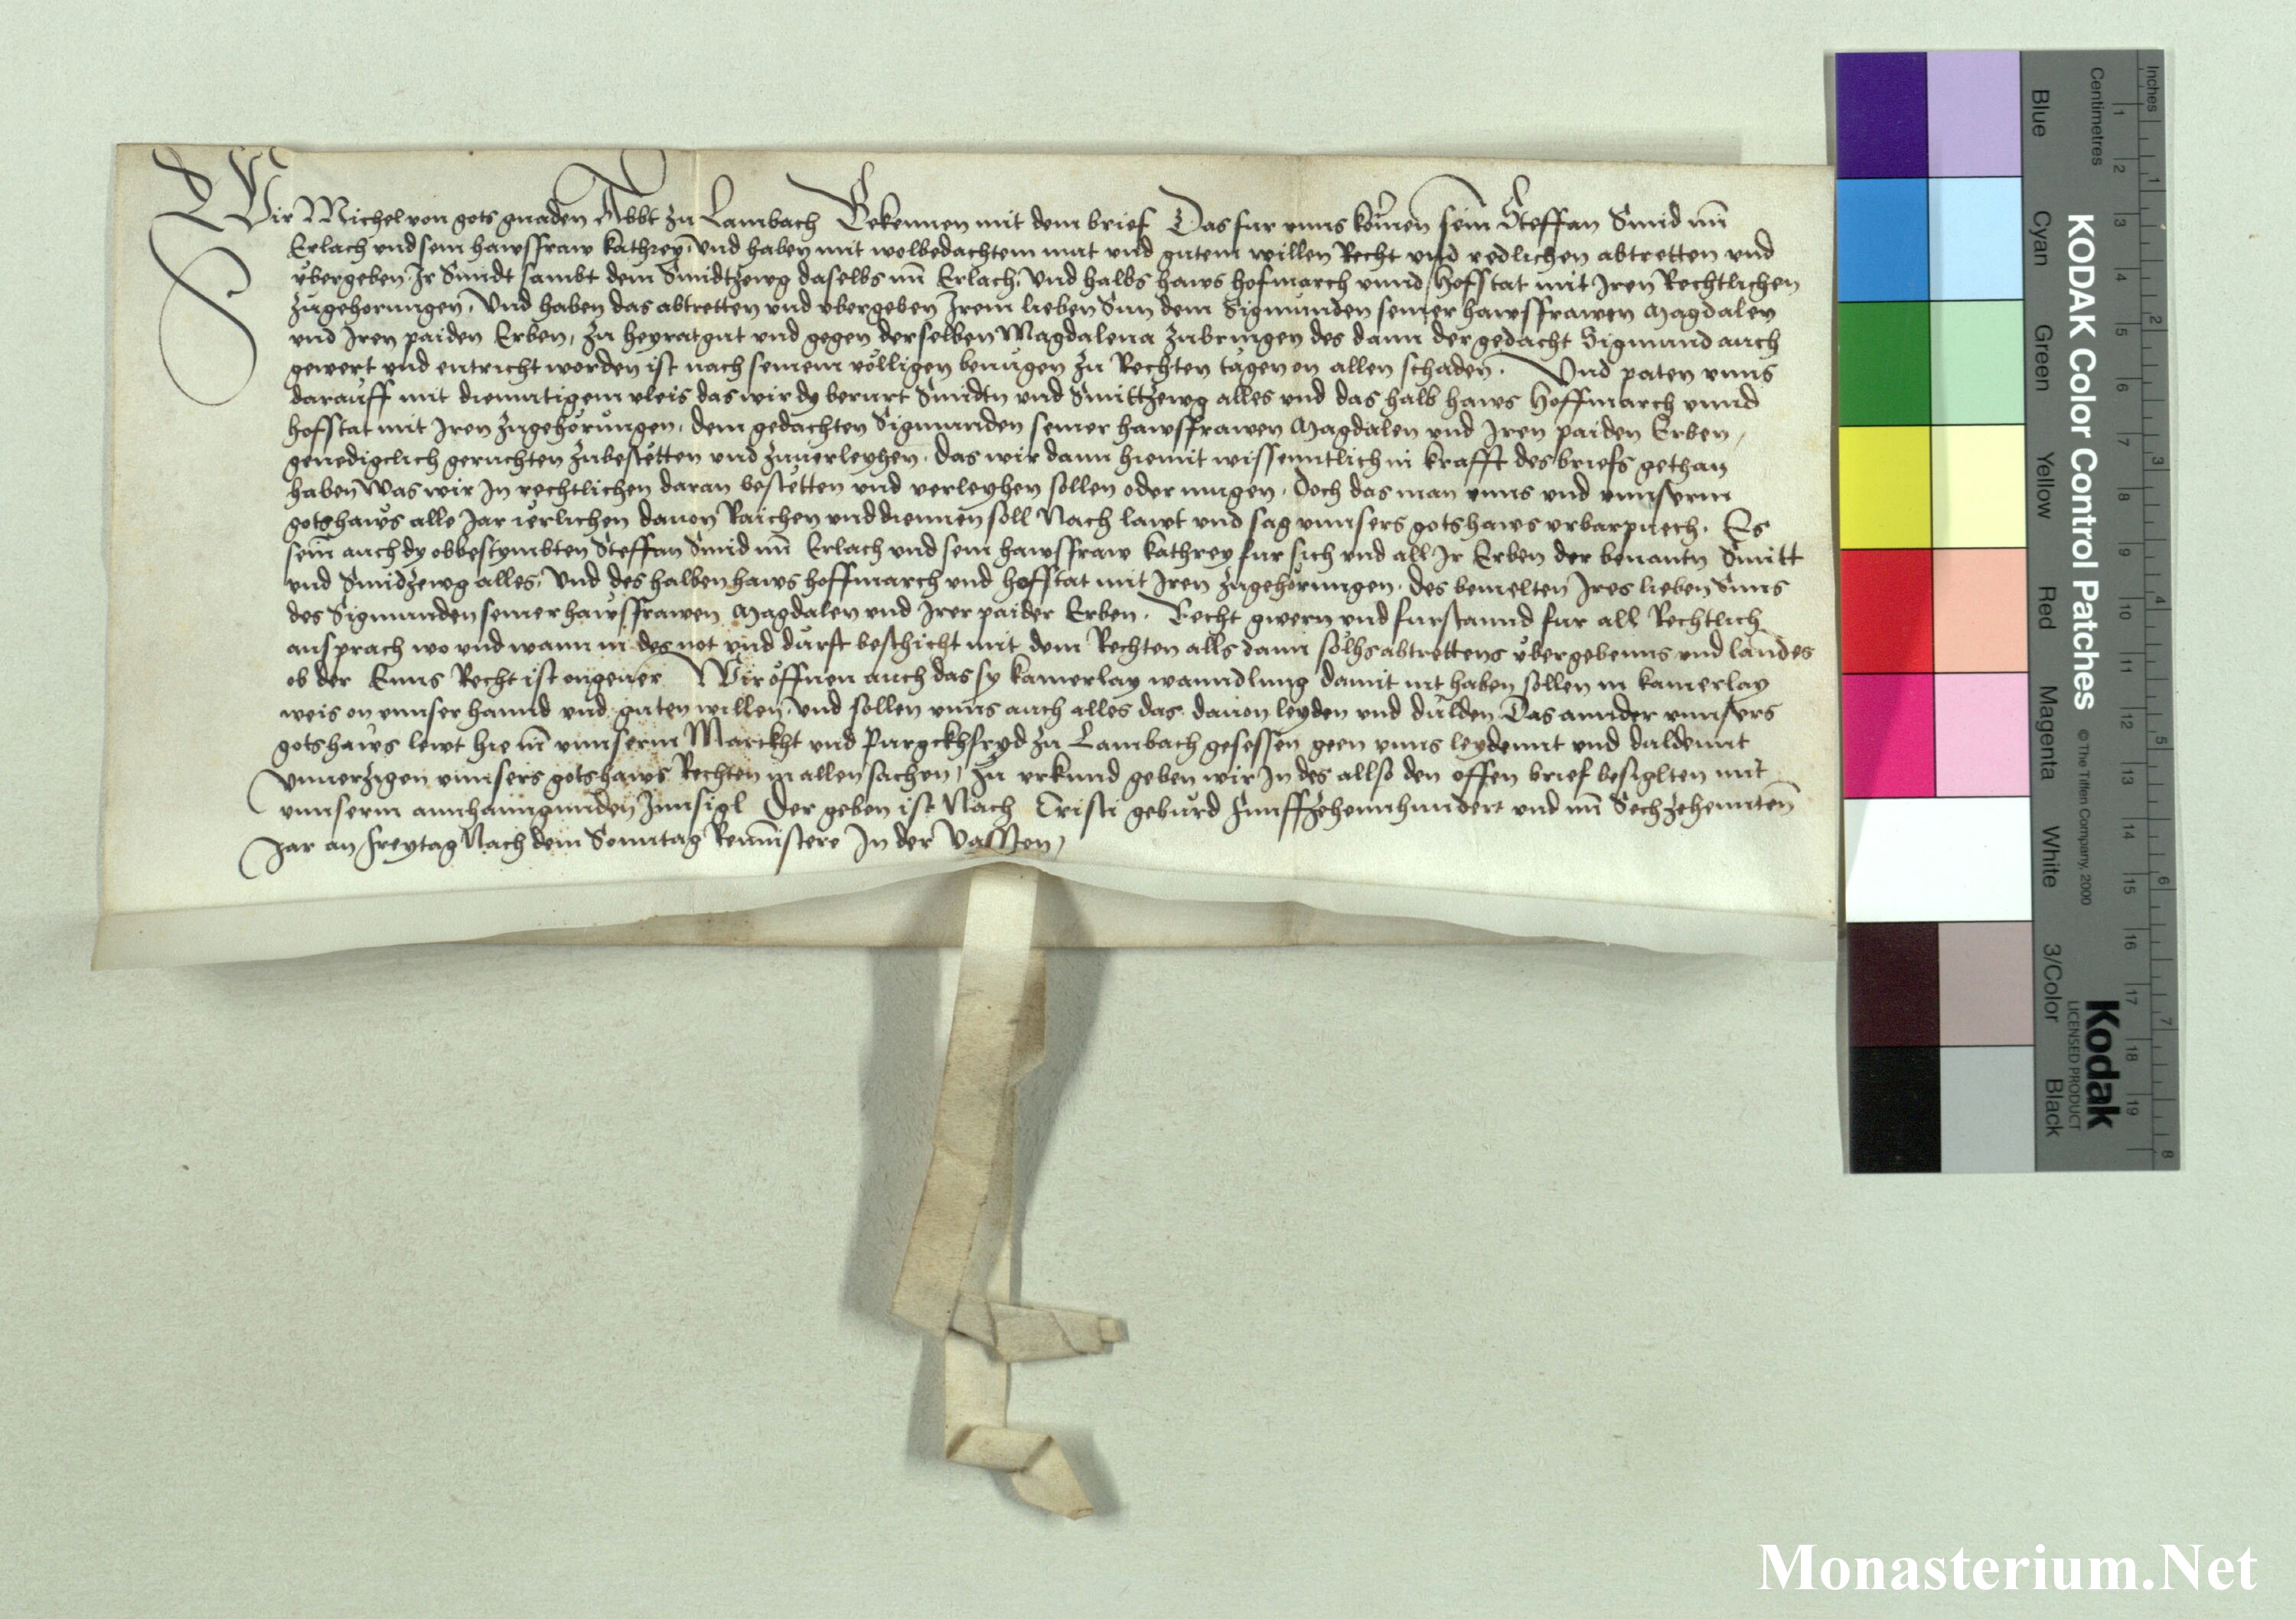 Wir Michel von gots gnaden Abbt zu Lambach Bekennen mit dem brief Das fur vnns komen sein Steffan Smid im
Erlach vnd sein hawsfraw Kathrey, Vnd haben mit wolbedachtem mut vnd gutem willen Recht vnd redlichen abtretten vnd
vbergeben Ir Smidt sambt dem Smidtzewg daselbs im Erlach, Vnd halbs haws hofmarch vnnd Hofstat mit Iren Rechtlichen
zugehorungen, Vnd haben das abtretten vnd vbergeben Irem lieben Sun dem Sigmunden seiner hawsfrawen Magdalen
vnd Iren paiden Erben, zu heyratgut vnd gegen derselben Magdalena zubringen des dann der gedacht Sigmund auch
gewert vnd entricht worden ist nach seinem völligen benugen zu Rechten tagen on allen schaden. Vnd paten vnns
darauff mit diemutigem vleis das wir dy berurt Smidtn vnd Smittzewg alles vnd das halb haws Hoffmarch vnnd
hofstat mit Iren zugehörungen, dem gedachten Sigmunden seiner hawsfrawen Magdalen vnd Iren paiden Erben,
genedigclich geruchten zubestetten vnd zuuerleyhen. Das wir dann hiemit wissenntlich in krafft des briefs gethan
haben Was wir In rechtlichen daran bestetten vnd verleyhen sollen oder mugen. Doch das man vnns vnd vnnserm
gotshaws alle Jar ierlichen dauon Raichen vnd diennen soll Nach lawt vnd sag vnnsers gotshaws vrbarpuech. Es
sein auch dy obbestymbten Steffan Smid im Erlach vnd sein hawsfraw Kathrey fur sich vnd all Ir Erben der benantn Smitt
vnd Smidzewg alles, Vnd des halben haws hoffmarch vnd hofstat mit Iren zugehörungen, des bemelten Ires lieben Suns
des Sigmunden seiner hawsfrawen Magdalen vnd Irer paider Erben. Recht gwern vnd furstannd fur all Rechtlich
ansprach wo vnd wann in des not vnd durft beschicht mit dem Rechten alls dann solhs abtrettens vbergebenns vnd landes
ob der Enns Recht ist ongeuer Wir öffnen auch das sy kainerlay wanndlung damit nit haben sollen in kainerlay
weis on vnnser hannd vnd guten willen, Vnd sollen vnns auch alles das dauon leyden vnd dulden Das annder vnnsers
gotshaws lewt hie in vnnserm Marckht vnd Purgckhfryd zu Lambach gesessen geen vnns leydennt vnd duldennt
Vnuerzigen vnnsers gotshaws Rechten in allen sachen, Zu vrkund geben wir In des allso den offen brief besiglten mit
vnnserm annhanngunden Innsigl Der geben ist Nach Cristi geburd Funffzehennhundert vnd im Sechzehennten
Jar an freytag Nach dem Sonntag Reministere In der Vassten,
KODAK Color Control Patches
© The Tiffen Company, 2000
Kodak
LICENSED PRODUCT
Inches
Centimetres
1 2 3 4 5 6 7 8 9 10 11 12 13 14 15 16 17 18 19
1 2 3 4 5 6 7 8
Blue
Cyan
Green
Yellow
Red
Magenta
White
3/Color
Black
Monasterium.Net